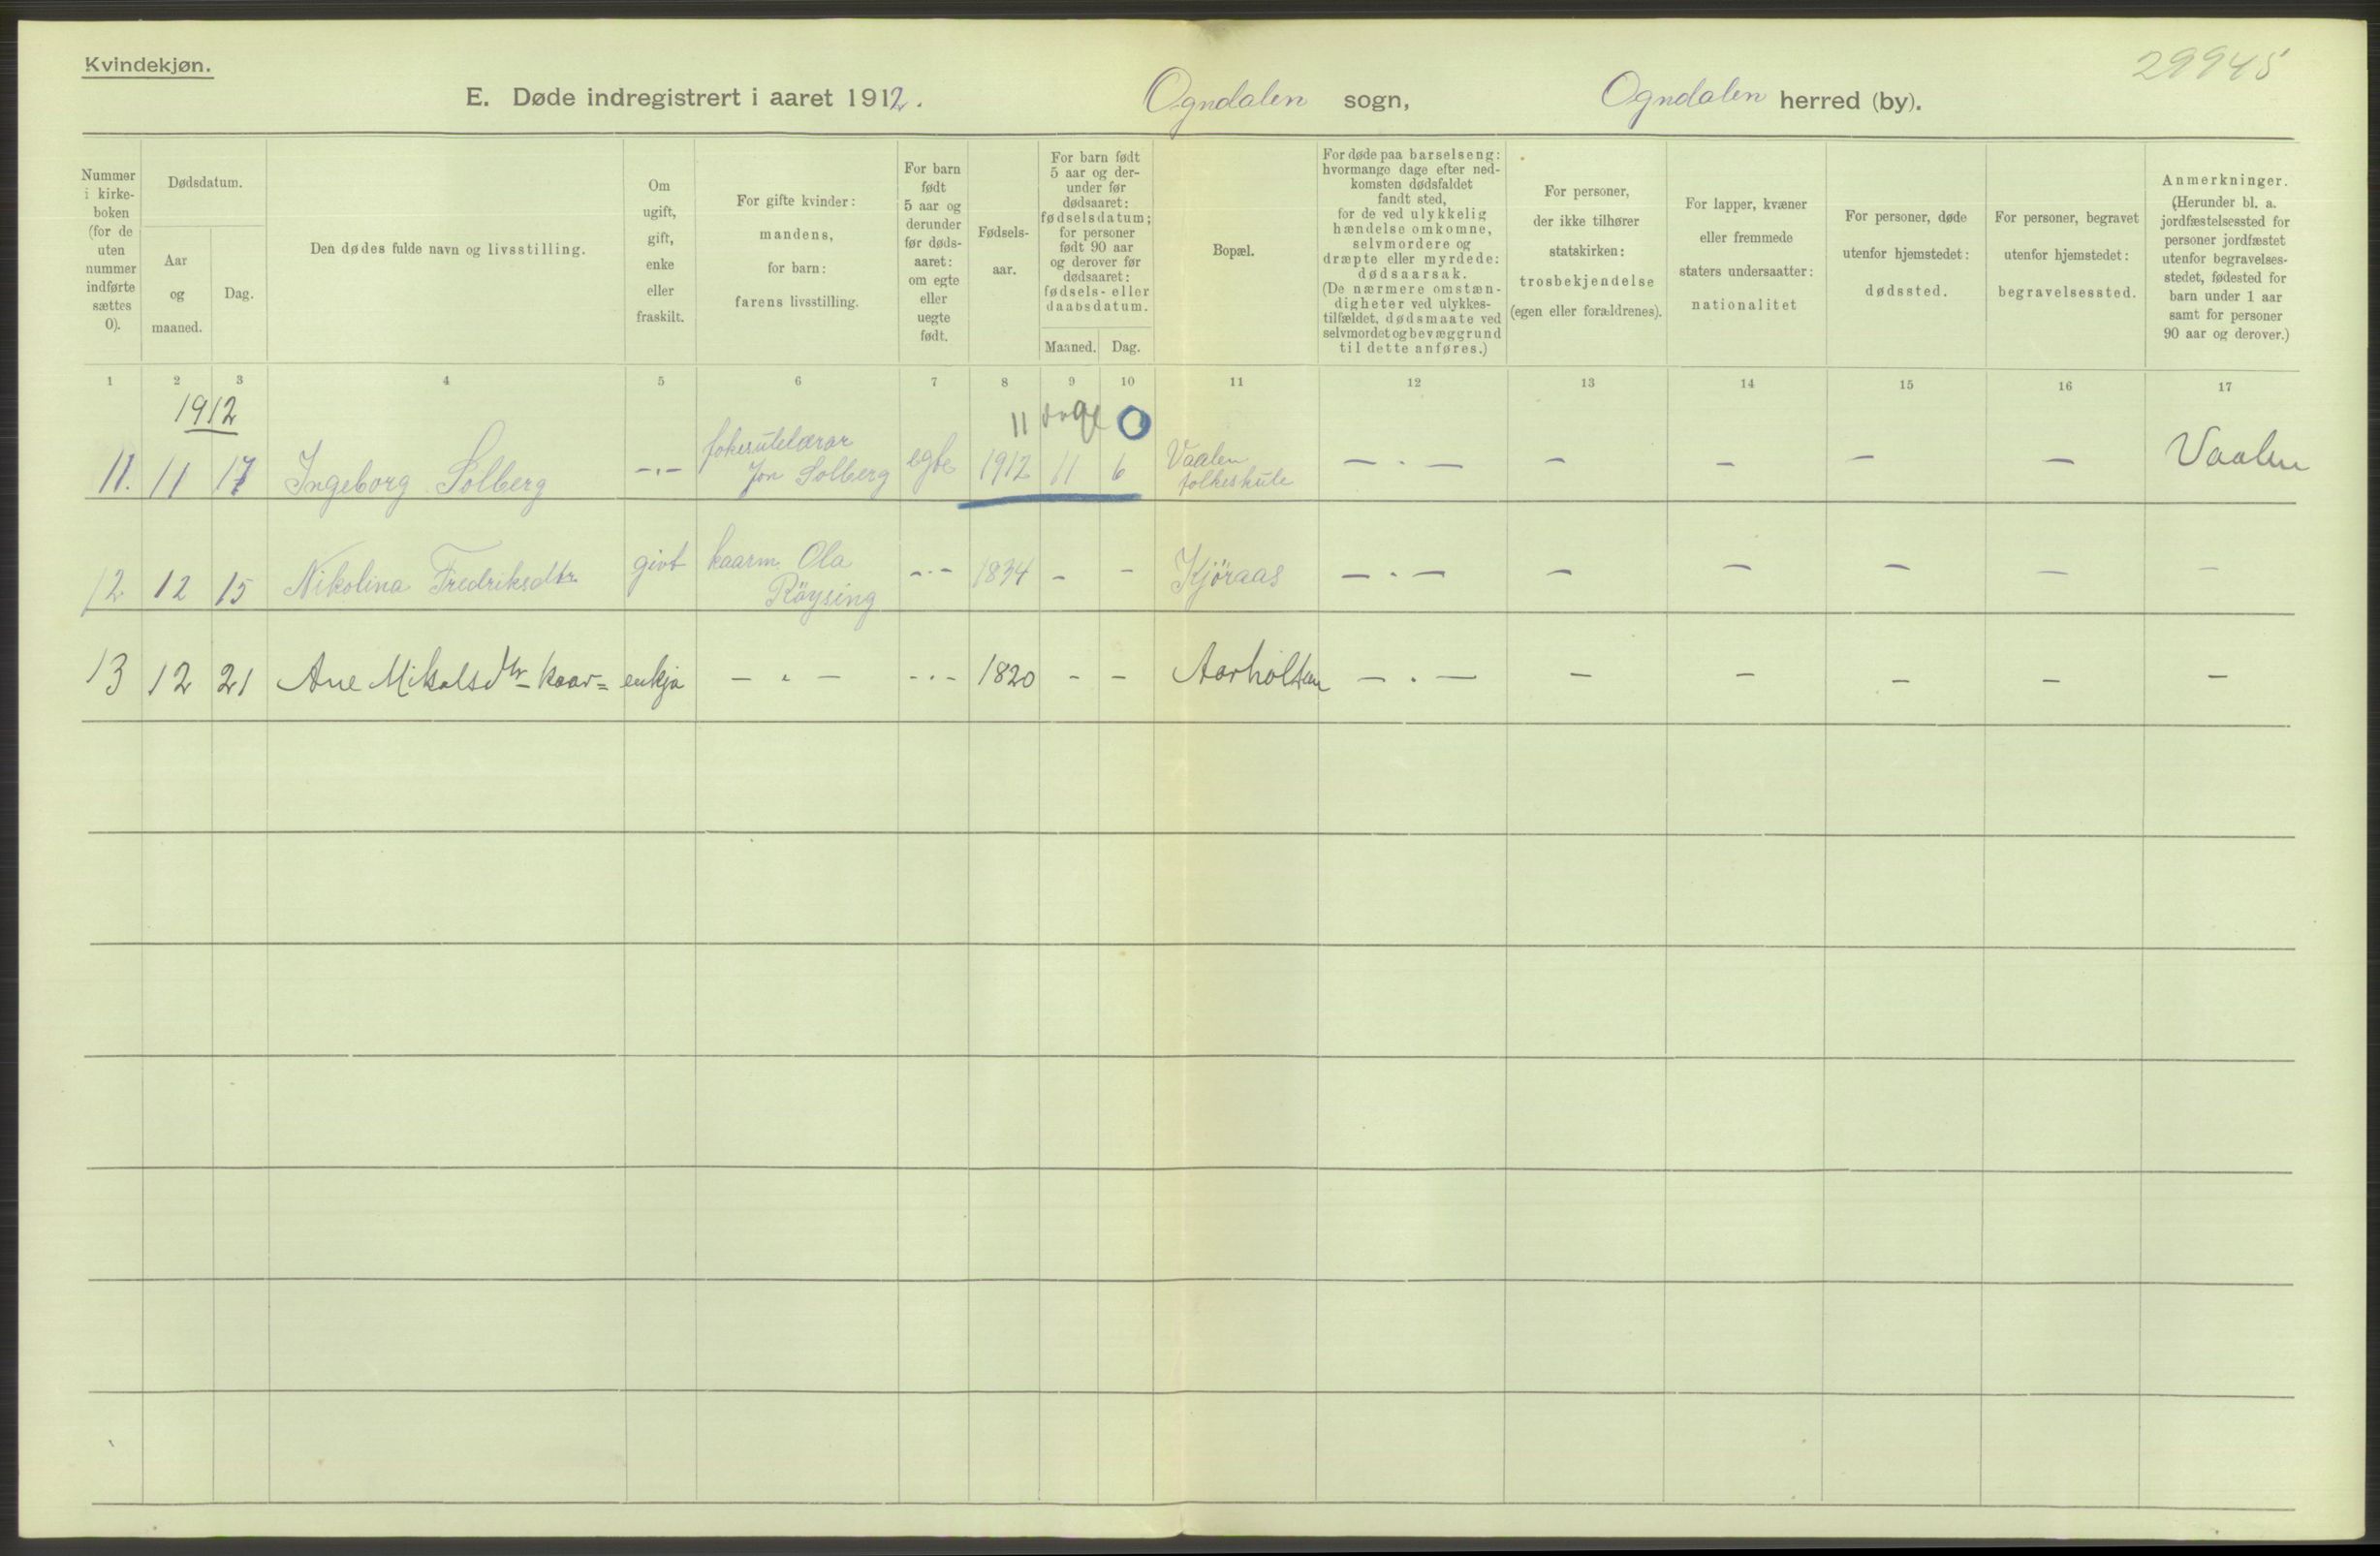 Kvindekjøn.
29945
E. Døde indregistrert i aaret 1912. Ogndalen sogn, Ogndalen herred (by).
Nummer
i kirke-
boken
(for de
uten
nummer
indførte
sættes
0).
Dødsdatum.
Aar
og
maaned.
Dag.
Den dødes fulde navn og livsstilling.
Om
ugift,
gift,
enke
eller
fraskilt.
For gifte kvinder:
mandens,
for barn:
farens livsstilling.
For barn
født
5 aar og
derunder
før døds-
aaret:
om egte
eller
uegte
født.
Fødsels-
aar.
For barn født
5 aar og der-
under før
dødsaaret:
fødselsdatum;
for personer
født 90 aar
og derover før
dødsaaret:
fødsels- eller
daabsdatum.
Maaned. Dag.
Bopæl.
For døde paa barselseng:
hvormange dage efter ned-
komsten dødsfaldet
fandt sted,
for de ved ulykkelig
hændelse omkomne,
selvmordere og
dræpte eller myrdede:
dødsaarsak.
(De nærmere omstæn-
digheter ved ulykkes-
tilfældet, dødsmaate ved
selvmordet og bevæggrund
til dette anføres.)
For personer,
der ikke tilhører
statskirken:
trosbekjendelse
(egen eller forældrenes).
For lapper, kvæner
eller fremmede
staters undersaatter:
nationalitet
For personer, døde
utenfor hjemstedet:
dødssted.
For personer, begravet
utenfor hjemstedet:
begravelsessted.
Anmerkninger.
(Herunder bl. a.
jordfæstelsessted for
personer jordfæstet
utenfor begravelses-
stedet, fødested for
barn under 1 aar
samt for personer
90 aar og derover.)
1 2 3 4 5 6 7 8 9 10 11 12 13 14 15 16 17
1912
11 0
11. 11 17 Ingeborg Solberg -.- Jon Solberg egte 1912 11 6 Vaalen — . — — — — — Vaalen
folkeskule
12. 12 15 Nikolina Fredriksdtr. givt kaarm. Ola -.- 1834 - - Kjöraas — . — — — — — —
Röysing
13 12 21 Ane Mikalsdtr kaar= enkja — . — -.- 1820 - - Aarholtan — . — — — — — —